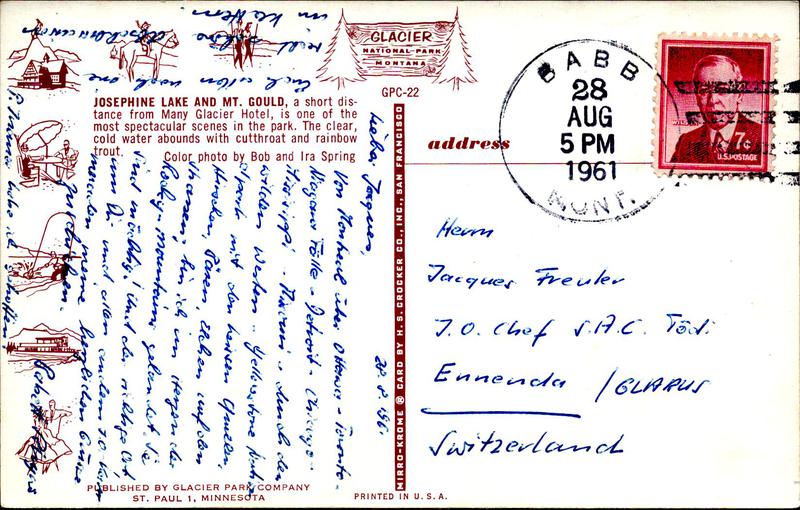 GLACIER
NATIONAL PARK
MONTANA
GPC-22
JOSEPHINE LAKE AND MT. GOULD, a short dis-
tance from Many Glacier Hotel, is one of the
most spectacular scenes in the park. The clear,
cold water abounds with cutthroat and rainbow
trout.
Color photo by Bob and Ira Spring
MIRRO-KROME ® CARD BY H. S. CROCKER CO., INC., SAN FRANCISCO
address
BABB
28
AUG
5 PM
1961
MONT.
7¢
U.S. POSTAGE
28.8.
Lieber Jacques,
Von Montreal über Ottawa - Toronto -
Niagara Fälle - Detroit - Chicago -
Missisippi - Missouri - durch den
wilden Westen - Yellowstone
park mit den heissen Quellen,
Hirschen, Bären, Elchen auf den
Strassen, bin ich im
Rocky-Mountains gelandet. Sie
sind mächtig! und der richtige Ort
um Dir und allen andern
meine herzlichen Grüsse
zu schicken.
Herrn
Jacques Freuler
J.O. Chef S.A.C. Tödi
Ennenda / GLARUS
Switzerland
PUBLISHED BY GLACIER PARK COMPANY
ST. PAUL 1, MINNESOTA
PRINTED IN U.S.A.